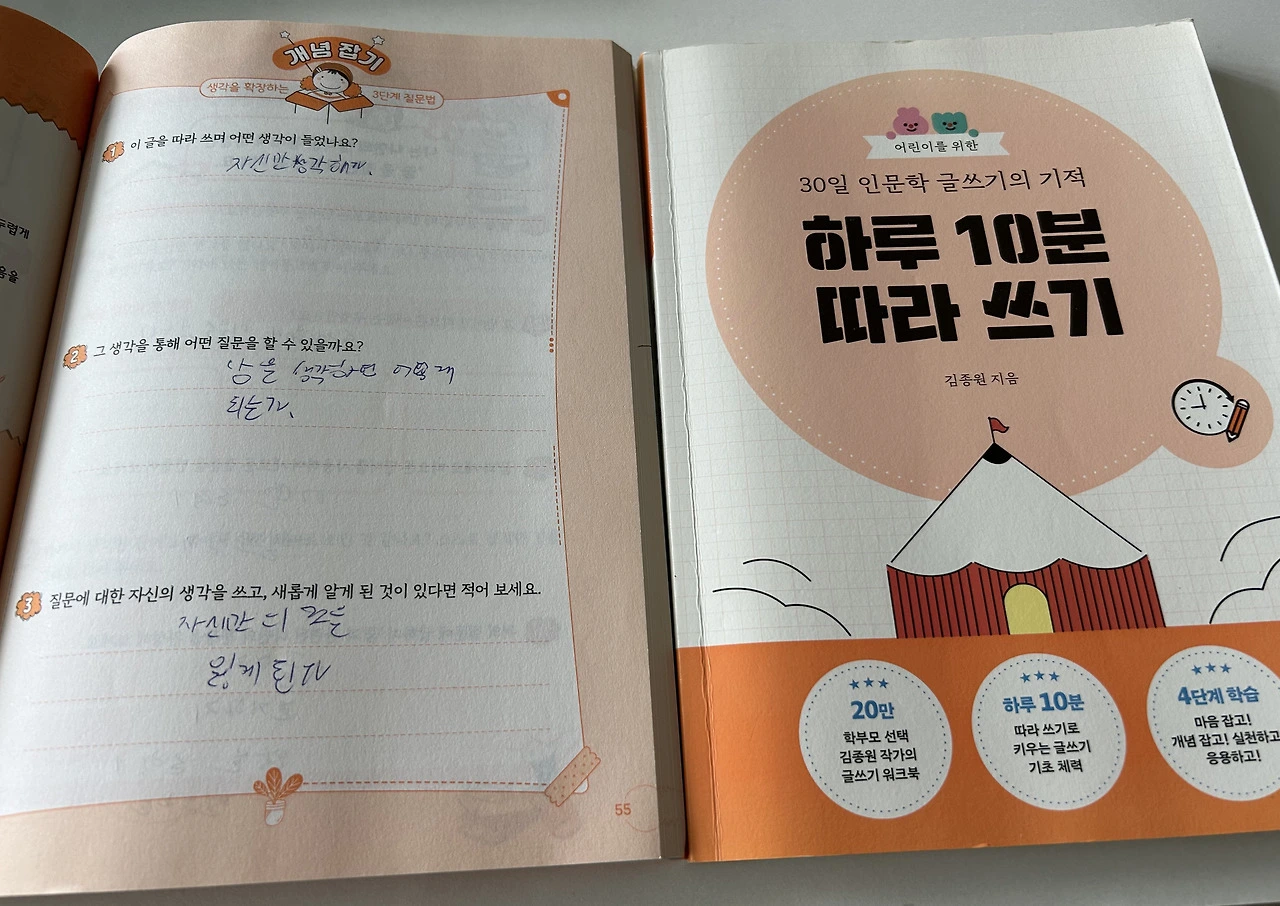 두렵게
음을
개념 잡기
생각을 확장하는 3단계 질문법
1 이 글을 따라 쓰며 어떤 생각이 들었나요?
자신만 생각해다.
2 그 생각을 통해 어떤 질문을 할 수 있을까요?
남을 생각하면 어떻게
되는가.
3 질문에 대한 자신의 생각을 쓰고, 새롭게 알게 된 것이 있다면 적어 보세요.
자신만의
잃게 된다
55
어린이를 위한
30일 인문학 글쓰기의 기적
하루 10분
따라 쓰기
김종원 지음
20만
학부모 선택
김종원 작가의
글쓰기 워크북
하루 10분
따라 쓰기로
키우는 글쓰기
기초 체력
4단계 학습
마음 잡고!
개념 잡고! 실천하고
응용하고!